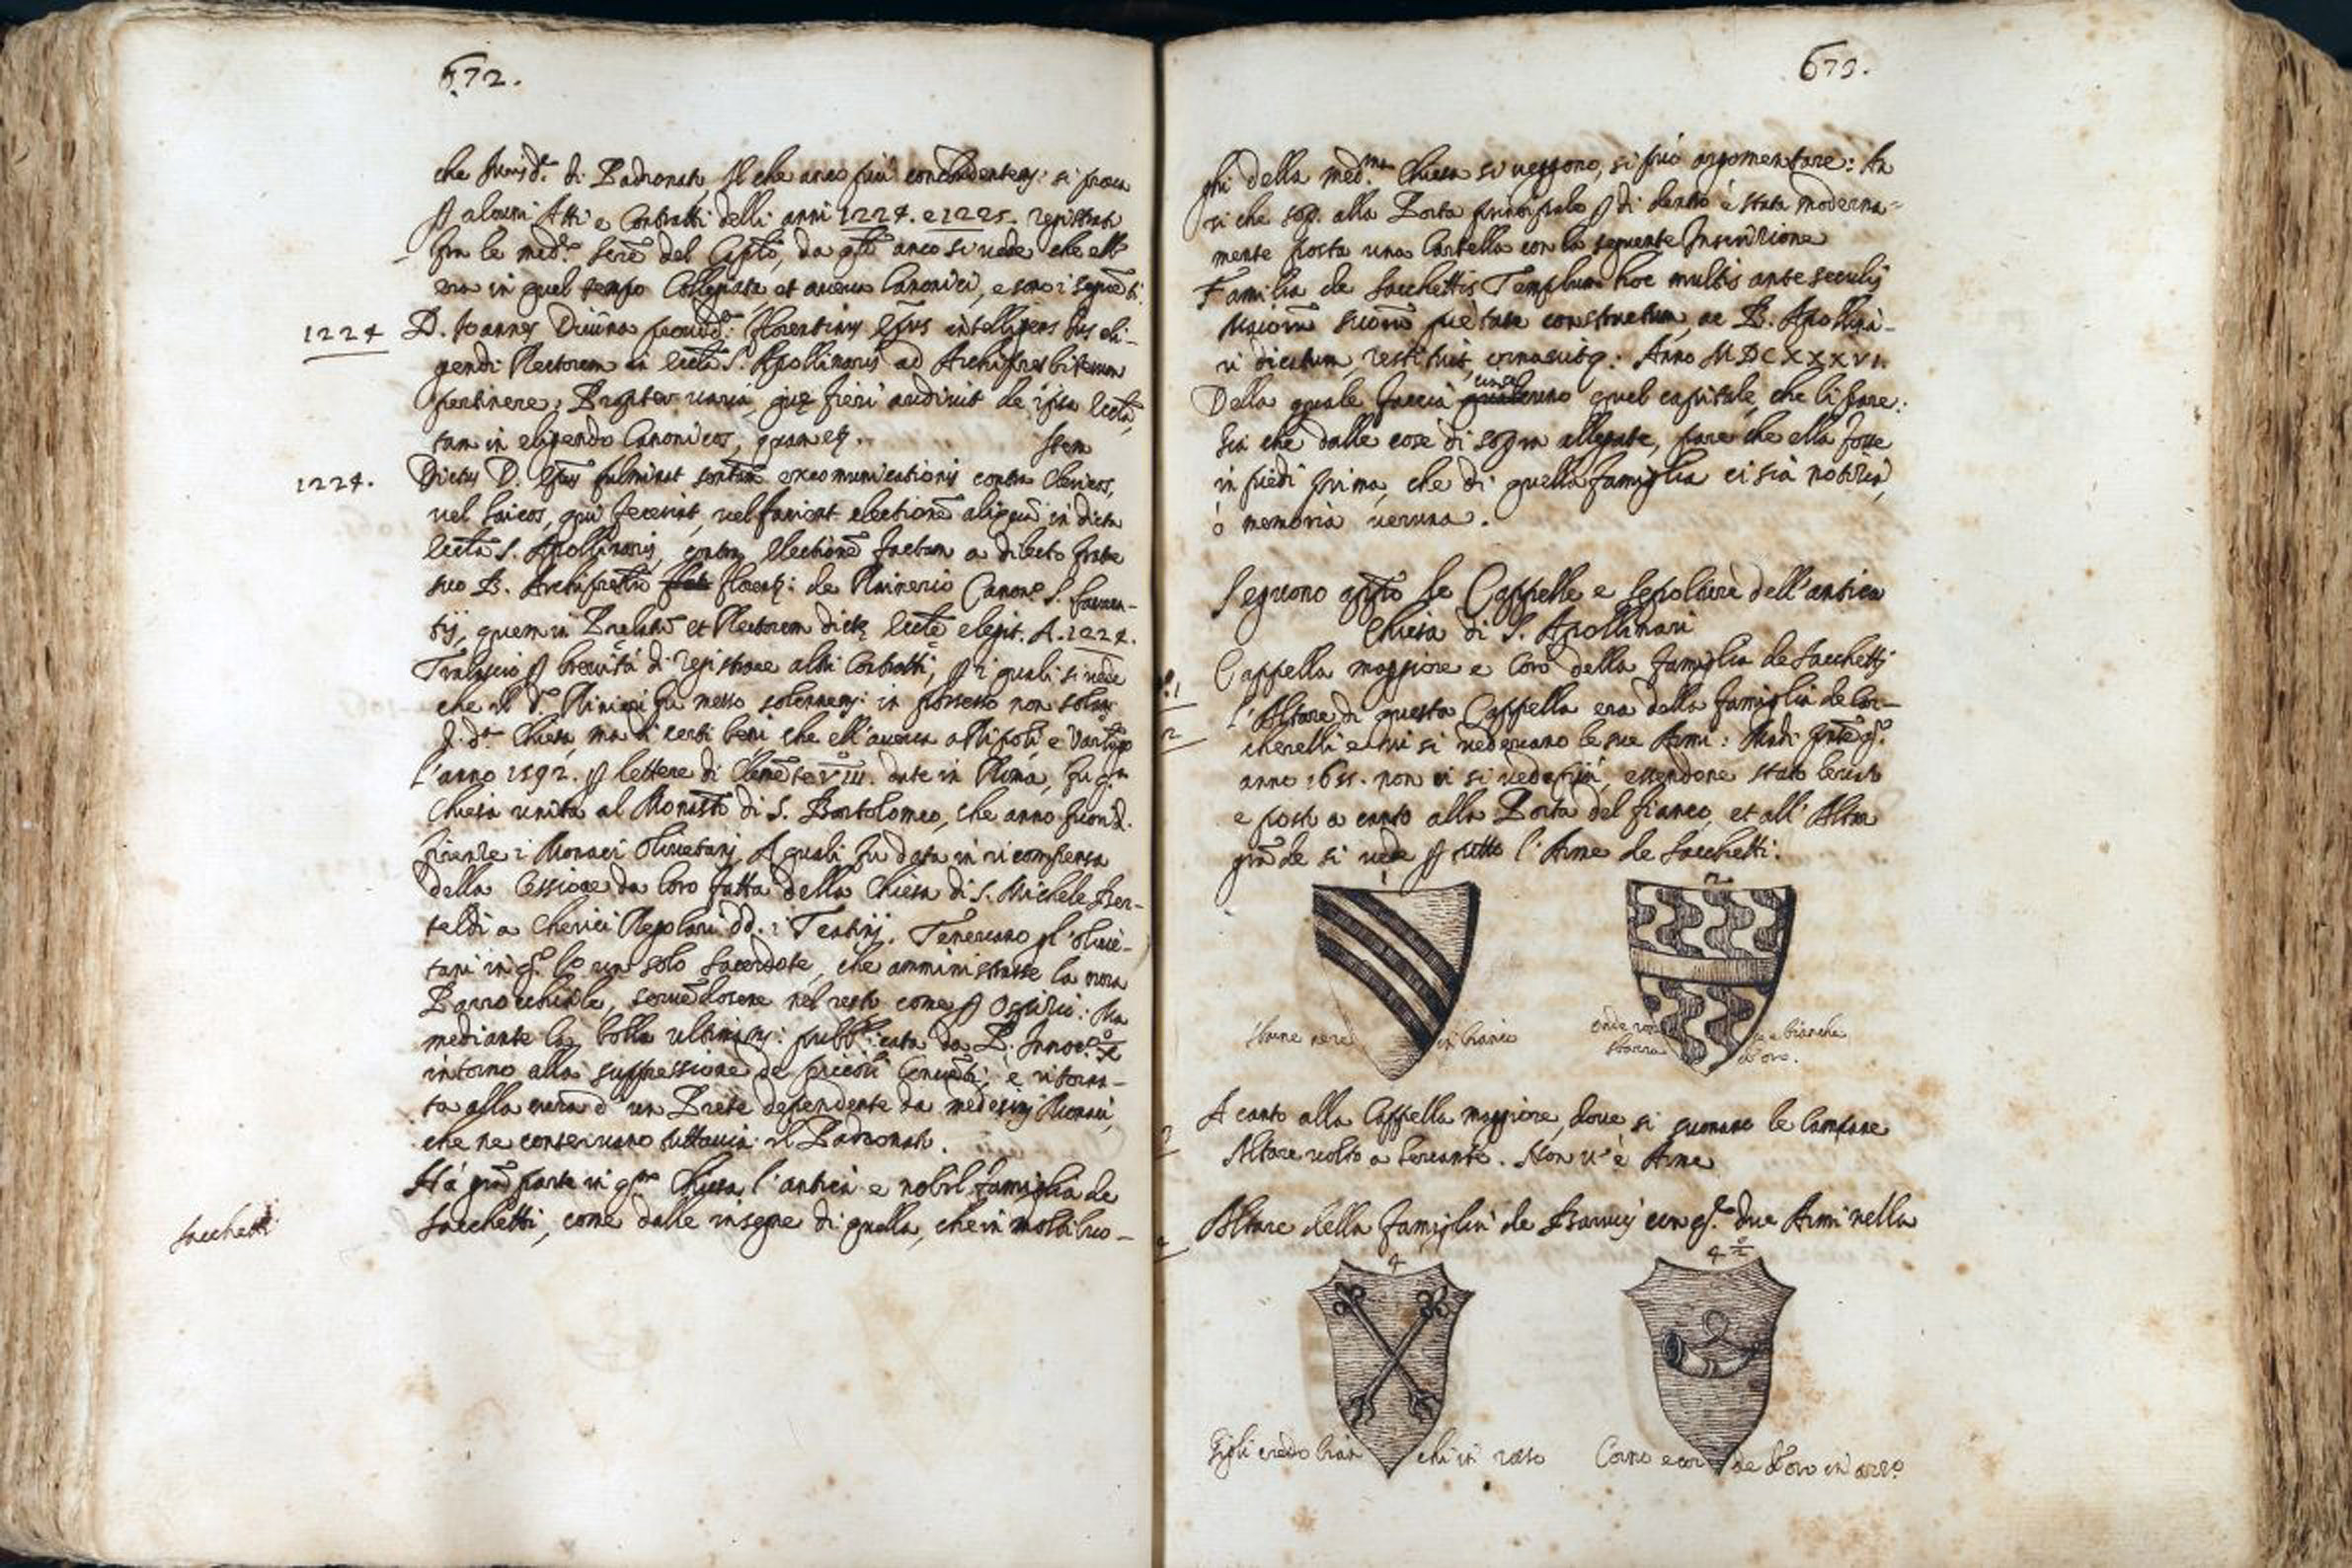 672.
che Jurisd.e di Padronato, Il che anco più concludentem: si prova
alcuni Atti e Contratti delli anni 1224. e 1225. registrati
fra le med.e del Capto, da anco si vede che ella
era in quel tempo Collegiata et aveva Canonici, e sono i
1224
D. Joannes Divina Florentinus Epus intelligens Jus eli-
gendi Rectorem in Eccla S. Apollinaris ad Archipresbiterum
pertinere, Propter varia, quę fieri audivit de ipsa Eccla,
tam in eligendo Canonicos, quam etz. Item
1224.
Dictus D. Epus fulminat excomunicationis contra Clericos,
vel laicos, qui fecerint, vel facient electionē aliquā in dicta
Eccla S. Apollinaris, contra Electionē factam a dilecto fratre
suo Archipresbro Florent: de Rainerio Canon.o S.
quem in Prelatū et Rectorem dictę Eccle elegit. A. 1224.
Tralascio brevità di registrare altri Contratti, i quali si vede
che il d.o Rinieri fu messo solennem: in possesso non solam.
d.a Chiesa, ma di certi beni che ell'aveva a Ripoli e
L'anno 1592. lettere di Clemēte VIII. date in Roma, fu
Chiesa unita al Monastō di S. Bartolomeo, che anno fuori d.
Firenze i Monaci Olivetani, A quali fu data in ricompensa
della Cessione da loro fatta della Chiesa di S. Michele Ber-
teldi a Cherici Regolari dd. i Teatini. Tenevano gl'Olive-
tani in un solo Sacerdote, che amministrasse la cura
Parrocchiale, servēdosene nel resto come Ospizio: Ma
mediante la bolla ultimam: pubb.icata da P. Innoc.o X
intorno alla suppressione de piccoli Convēti, e ritorna-
ta alla cura d'un Prete dependente da medesimi Monaci,
che ne conservano tuttavia il Padronato.
Hà grā parte in Chiesa, l'antica e nobil famiglia de
Sacchetti
Sacchetti, come dalle insegne di quella, che in molti luo-
673.
ghi della med.ma Chiesa si veggono, si può argomentare: An
zi che sop. alla Porta principale di dentro è stata moderna-
mente posta una Cartella con la seguente Inscrizione
Familia de Sacchettis Templum hoc multis ante seculis
Maiorū suorū pietate constructum, ac B. Apollina-
ri dicatum, restituit, ornavitq: Anno MDCXXXVI.
Della quale faccia quel capitale, che li pare:
Già che dalle cose di sopra allegate, pare che ella fosse
in piedi prima, che di quella famiglia ci sia notizia,
ò memoria veruna.
Seguono app.to le Cappelle e Sepolture dell'antica
Chiesa di S. Apollinari
1
Cappella maggiore e Coro della famiglia de Sacchetti
2
L'Altare di questa Cappella era della famiglia de
cherelli e vi si vedevano le sue Armi:
anno 1655. non vi si vede più, essendone stato levato
e posto a canto alla Porta del fianco, et all'Altar
grāde si vede tutto l'Arme de Sacchetti.
1
2
Sbarre nere in bianco
onde rosse e bianche
sbarra d'oro.
3
A canto alla Cappella maggiore, dove si suonano le Campane
Altare volto a Levante. Non v'è Arme
4
Altare della famiglia de con due Armi nella
4
4
Gigli credo bianchi in rosso
Corno e corde d'oro in azz.o